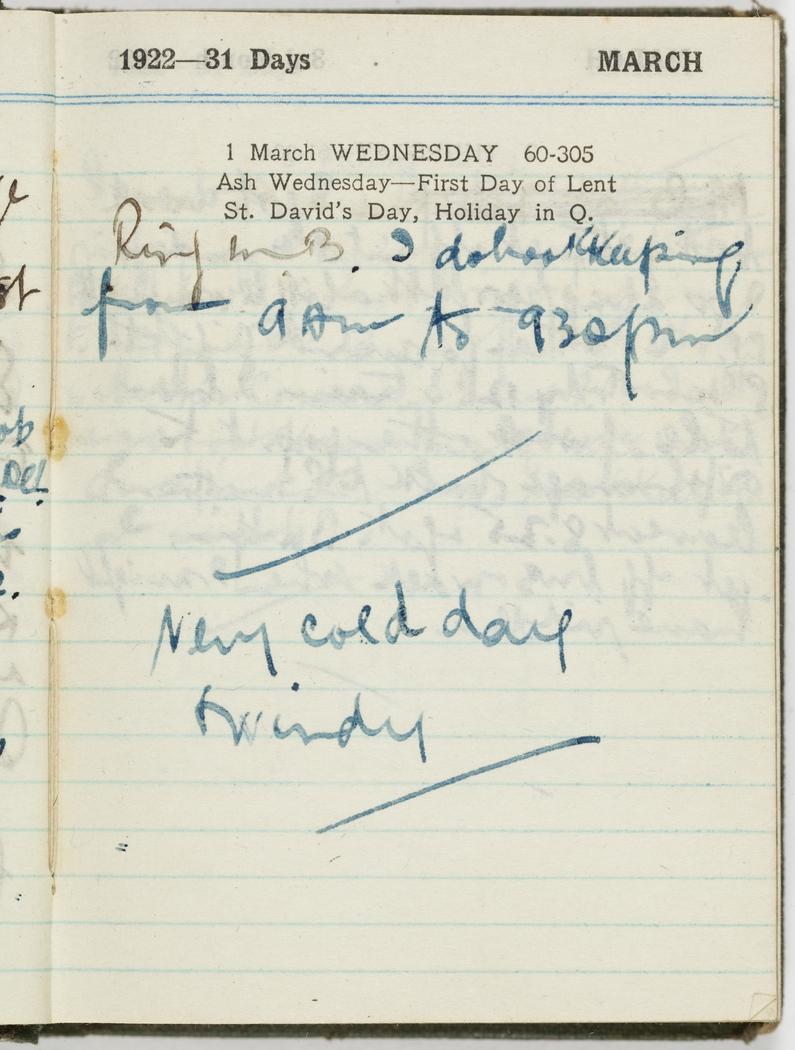 1922—31 Days MARCH
1 March WEDNESDAY 60-305
Ash Wednesday—First Day of Lent
St. David's Day, Holiday in Q.
Ring Mr B. I do bookkeeping
from 9 am to 930 pm
Very cold day
& windy